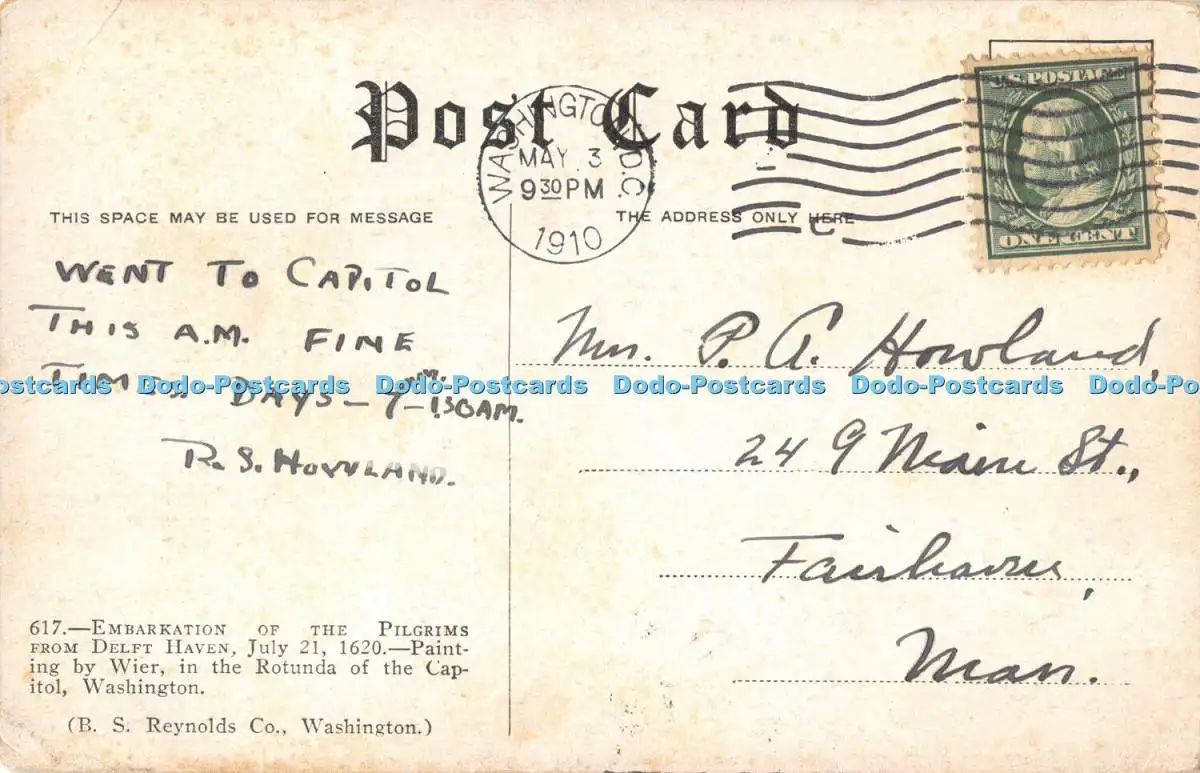 Post Card
WASHINGTON, D.C.
MAY 3
9 30 PM
1910
U.S. POSTAGE
ONE CENT
THIS SPACE MAY BE USED FOR MESSAGE
THE ADDRESS ONLY HERE
WENT TO CAPITOL
THIS A.M. FINE
DAYS —
R. S. HOWLAND.
Mrs. P. A. Howland,
249 Main St.,
Fairhaven,
Mass.
Postcards Dodo-Postcards Dodo-Postcards Dodo-Postcards Dodo-Postcards Dodo-Postcards
617.—EMBARKATION OF THE PILGRIMS
FROM DELFT HAVEN, July 21, 1620.—Paint-
ing by Wier, in the Rotunda of the Cap-
itol, Washington.
(B. S. Reynolds Co., Washington.)